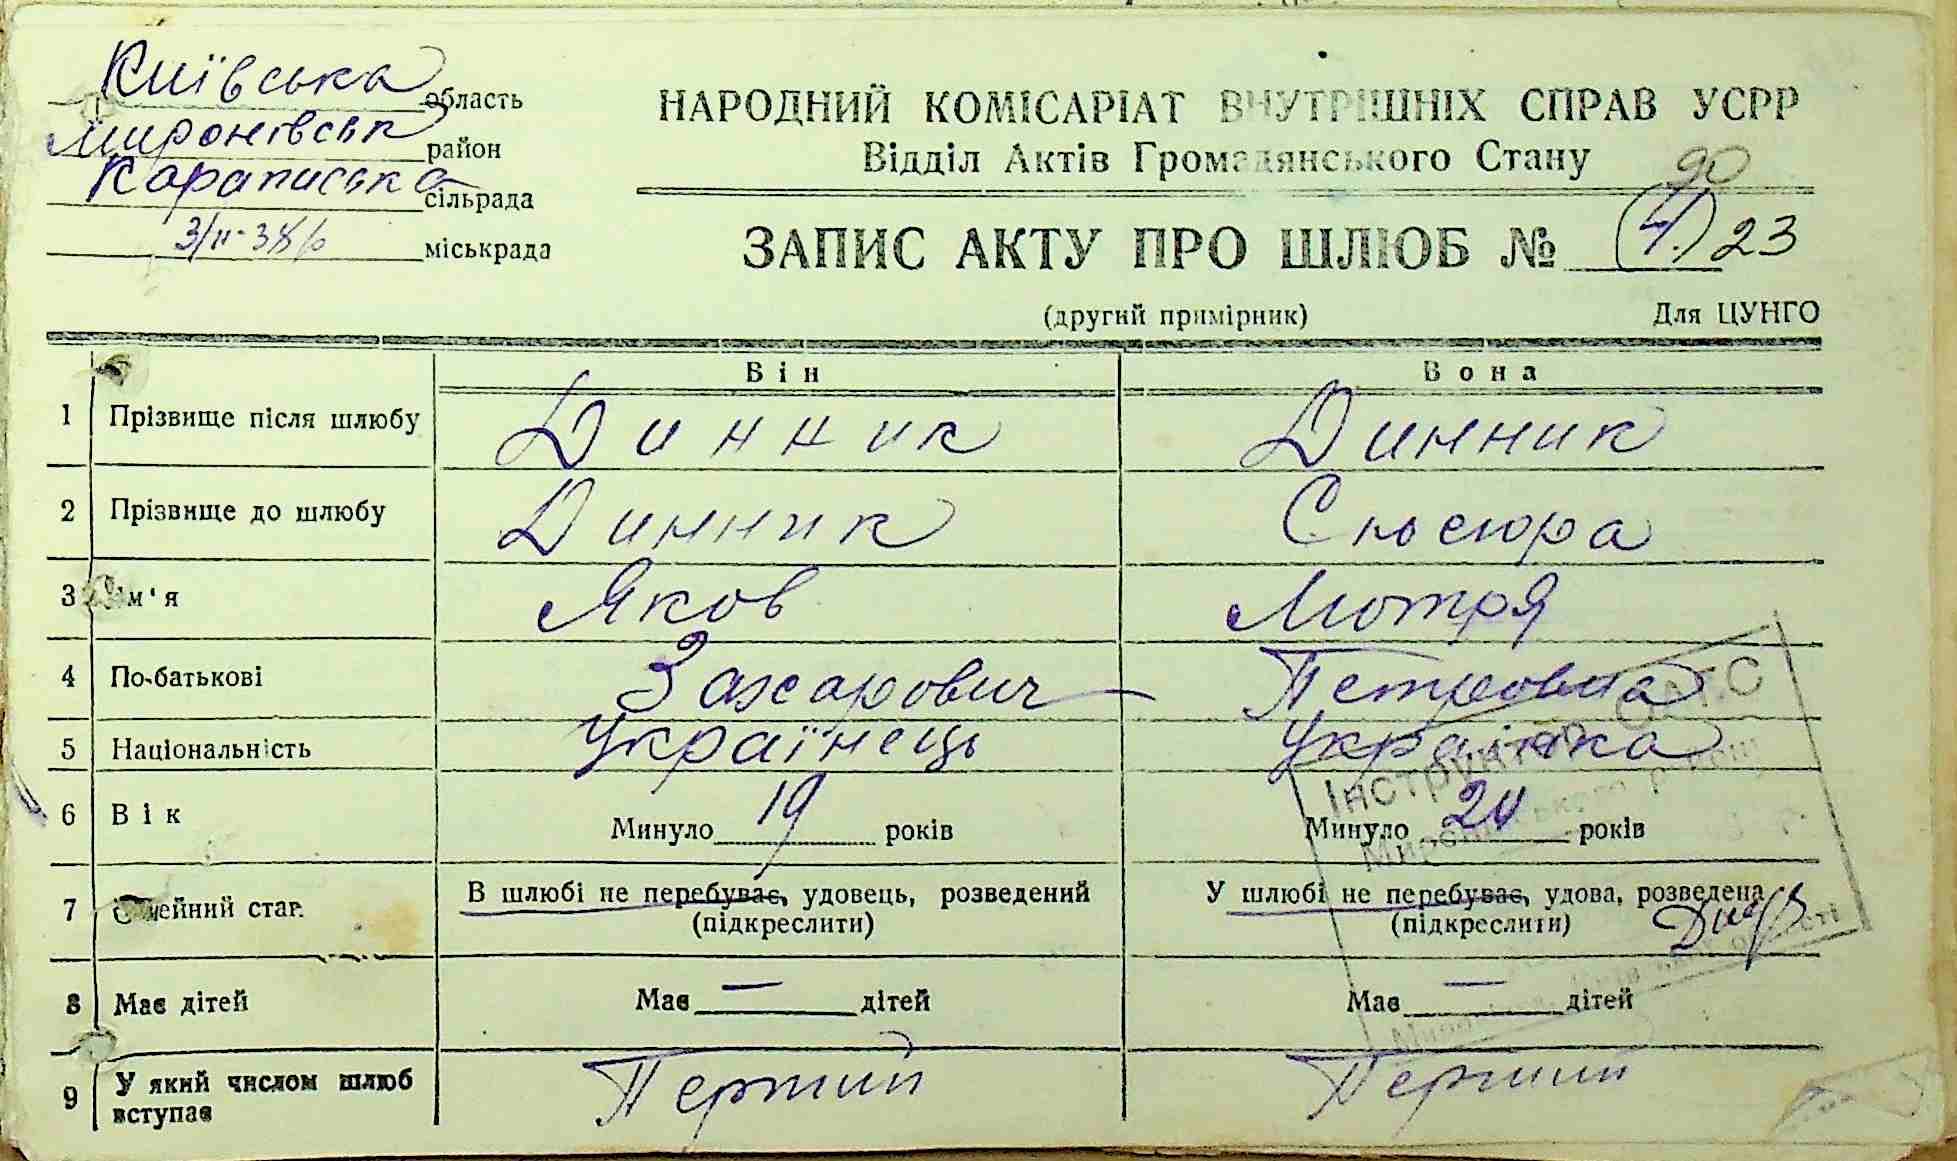 Київська область
Миронівськ район
Караписька сільрада
міськрада
НАРОДНИЙ КОМІСАРІАТ ВНУТРІШНІХ СПРАВ УСРР
Відділ Актів Громадянського Стану
90
ЗАПИС АКТУ ПРО ШЛЮБ № (4.) 23
(другий примірник) Для ЦУНГО
Він Вона
1 Прізвище після шлюбу Динник Динник
2 Прізвище до шлюбу Динник Сюсюра
3 Ім'я Яков Мотря
4 По-батькові Захарович Петровна
5 Національність Українець Українка
6 Вік Минуло 19 років Минуло 20 років
7 Сімейний стан В шлюбі не перебуває, удовець, розведений У шлюбі не перебуває, удова, розведена
(підкреслити) (підкреслити)
8 Має дітей Має — дітей Має — дітей
9 У який числом шлюб вступає Перший Перший
Інструктор О.А.Г.С